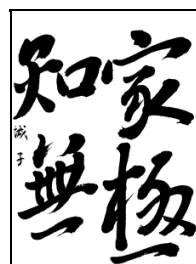 家極
知無
誠子